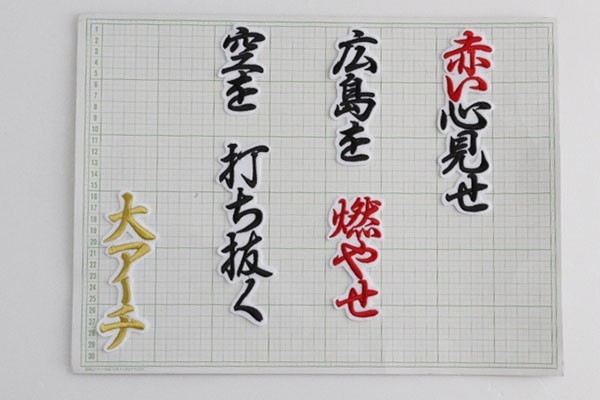 赤い心見せ
広島を 燃やせ
空を 打ち抜く
大アーチ